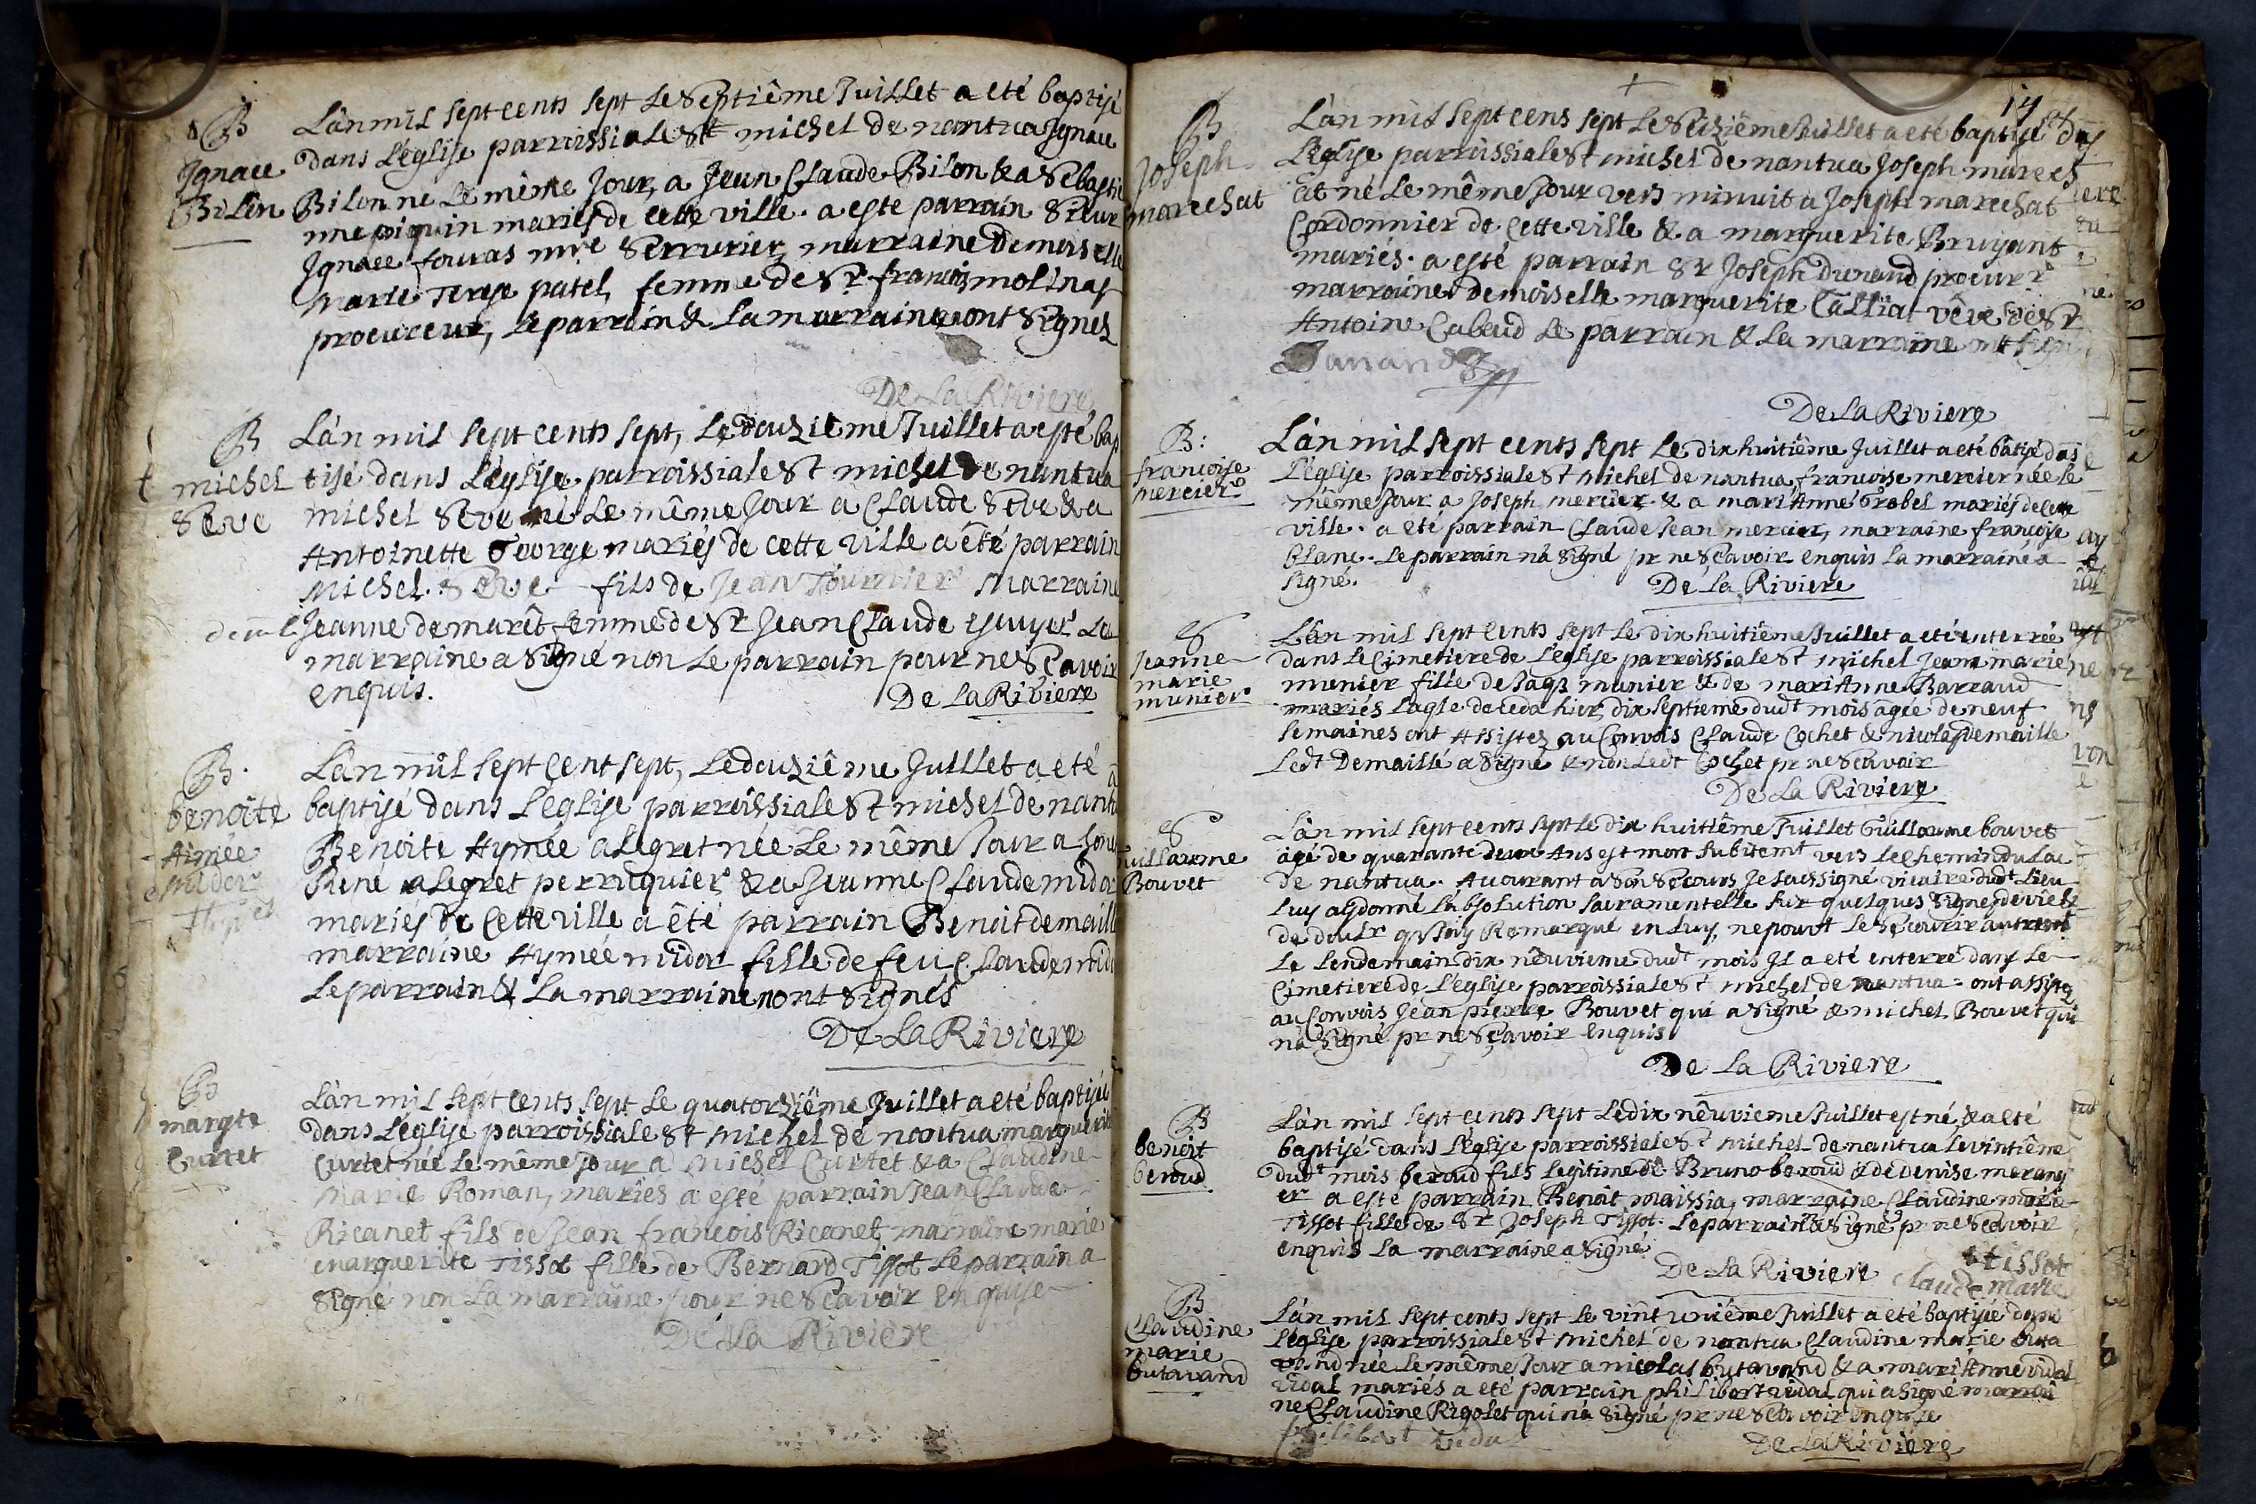 B
Ignace
Bilon
L'an mil sept cents sept le Septiême Juillet a eté baptisé
dans l'église parroissiale St michel de nantua Ignace
Bilon né le même jour, a Jean Claude Bilon & a Sebastie
nne piquin mariés de cette ville. a esté parrain Sieur
Ignace fouras mre Serrurier, marraine Demoiselle
Marie Terese patel, femme de Sr. francois molinas
procureur, le parrain & la marraine ont Signes
De La Riviere
B
michel
Seve
L'an mil sept cents sept, le douziême Juillet a esté bap
tisé dans l'église parroissiale St michel de nantua
michel Seve né le même jour a Claude Seve & a
Antoinette George mariés de cette ville a êté parrain
Michel Seve fils de Jean Tournier Marraine
Jeanne demarêt femme de Sr Jean Claude La
marraine a Signé non le parrain pour ne Sçavoir
enquis.
De La Riviere
B.
benoite
Aimée
L'an mil sept cent sept, le douziême Juillet a eté
baptisé dans l'église parroissiale St michel de nantu
Benoite Aymée alegret née le même jour a
René alegret perruquier & a Jeanne Claude midor
mariés de cette ville a êté parrain Benoit demaill
marraine Aymée midor fille de feu Claude mido
le parrain & la marraine n'ont Signés
De La Riviere
B
margte
Curtet
L'an mil sept cents sept le quatorziême Juillet a eté baptisée
dans l'église parroissiale St Michel de nantua marguerite
Curtet née le même jour a Michel Curtet & a Claudine
Marie Roman, mariés a esté parrain Jean Claude
Ricanet fils de Jean francois Ricanet marraine marie
marguerite Tissot fille de Bernard Tissot le parrain a
Signé non la marraine pour ne Sçavoir enquise
De La Riviere
B
Joseph
marechat
L'an mil sept cens sept le Seiziême Juillet a eté baptisé das
l'église parroissiale St michel de nantua Joseph marech
at né le même jour vers minuit a Joseph marechat
Cordonnier de cette ville & a marguerite Bruyant
mariés. a esté parrain Sr Joseph Dunand procurr
marraine demoiselle marguerite Calliat vêve de Sr
Antoine Cabaud le parrain & la marraine ont sign
Dunand
De La Riviere
B:
francoise
mercier
L'an mil sept cents sept le dix huitiême Juillet a eté batisé das
l'église parroissiale St michel de nantua francoise mercier née le
même jour a Joseph mercier & a mari Anne Grobel mariés de cette
ville. a eté parrain Claude Jean mercier, marraine francoise
Blanc. le parrain n'a Signé pr ne Sçavoir enquis la marraine a
signé.
De La Riviere
S
Jeanne
marie
munier
L'an mil sept cents sept le dix huitiême Juillet a eté enterrée
dans le Cimetiere de l'église parroissiale St michel Jeane marie
munier fille de Jaqs munier & de mari Anne Barraud
mariés laqle deceda hier, dix septieme dudt mois agée de neuf
semaines ont Assistez au Convois Claude Cochet & nicolas demaille
ledt Demaillé a Signé & non ledt Cochet pr ne Sçavoir
De La Riviere
S
Guillaume
Bouvet
L'an mil sept cents sept le dix huitiême Juillet Guillaume bouvet
agé de quarante deux Ans est mort subitemt vers le chemin du lac
de nantua. Accourant a son Secours Je soussigné vicaire dudt lieu
luy ay donné l'absolution sacramentelle sur quelques Signes de vie &
de doulr qu'J'ay Remarqué en luy, ne pouvt le Secourir autremt
le lendemain dix neuvieme dudt mois Il a eté enterré dans le
Cimetiere de l'église parroissiale St michel de nantua. ont assistez
au Convois Jean pierre Bouvet qui a Signé & michel Bouvet qui
n'a Signé pr ne Sçavoir enquis
De La Riviere
B
benoit
beroud
L'an mil sept cents sept le dix neuvieme Juillet est né, & a eté
baptisé dans l'église parroissiale St michel de nantua le vintiême
dudt mois beroud fils legitime de Bruno beroud & de denise morang
er a esté parrain Benoit maissia, marraine Claudine marie
Tissot fille de Sr Joseph Tissot. le parrain n'a Signé pr ne Sçavoir
enquis la marraine a Signé
De La Riviere
tissot
claude marie
B
Claudine
marie
butavand
L'an mil sept cents sept le vint uniême Juillet a eté baptisée dans
l'église parroissiale St michel de nantua Claudine marie buta
vand née le même jour a nicolas butavand & a mari Anne vidal
vidal mariés a eté parrain philibert vidal qui a signé marrai
ne Claudine Rigolet qui n'a Signé pr ne Sçavoir enquise
philibert vidal
De La Riviere